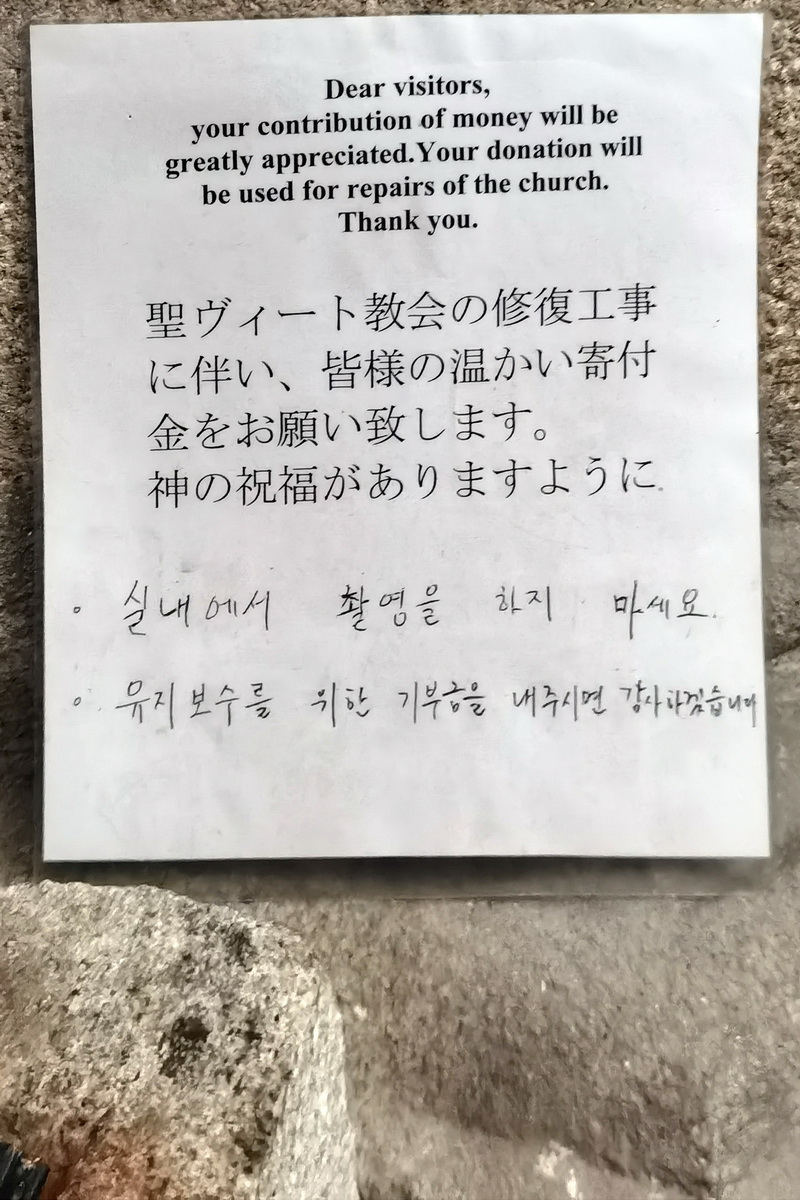 Dear visitors,
your contribution of money will be
greatly appreciated.Your donation will
be used for repairs of the church.
Thank you.
聖ヴィート教会の修復工事
に伴い、皆様の温かい寄付
金をお願い致します。
神の祝福がありますように
◦ 실내에서 촬영을 하지 마세요.
◦ 뮤지보수를 위한 기부금을 내주시면 감사하겠습니다